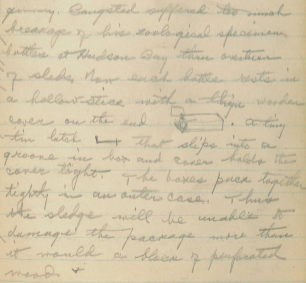 primary. Bangsted suffered too much
breakage of his zoological specimen
bottles at Hudson Bay then onation
of sleds. Now each bottle rests in
a hollow stick with a thin wooden
cover on the end . a tiny
tin latch that slips into a
groove in box and cover holds the
cover tight. The boxes pack together
tightly in an outer case. Thus
the sledge will be unable to
damage the package more than
it would a block of perforated
wood. x